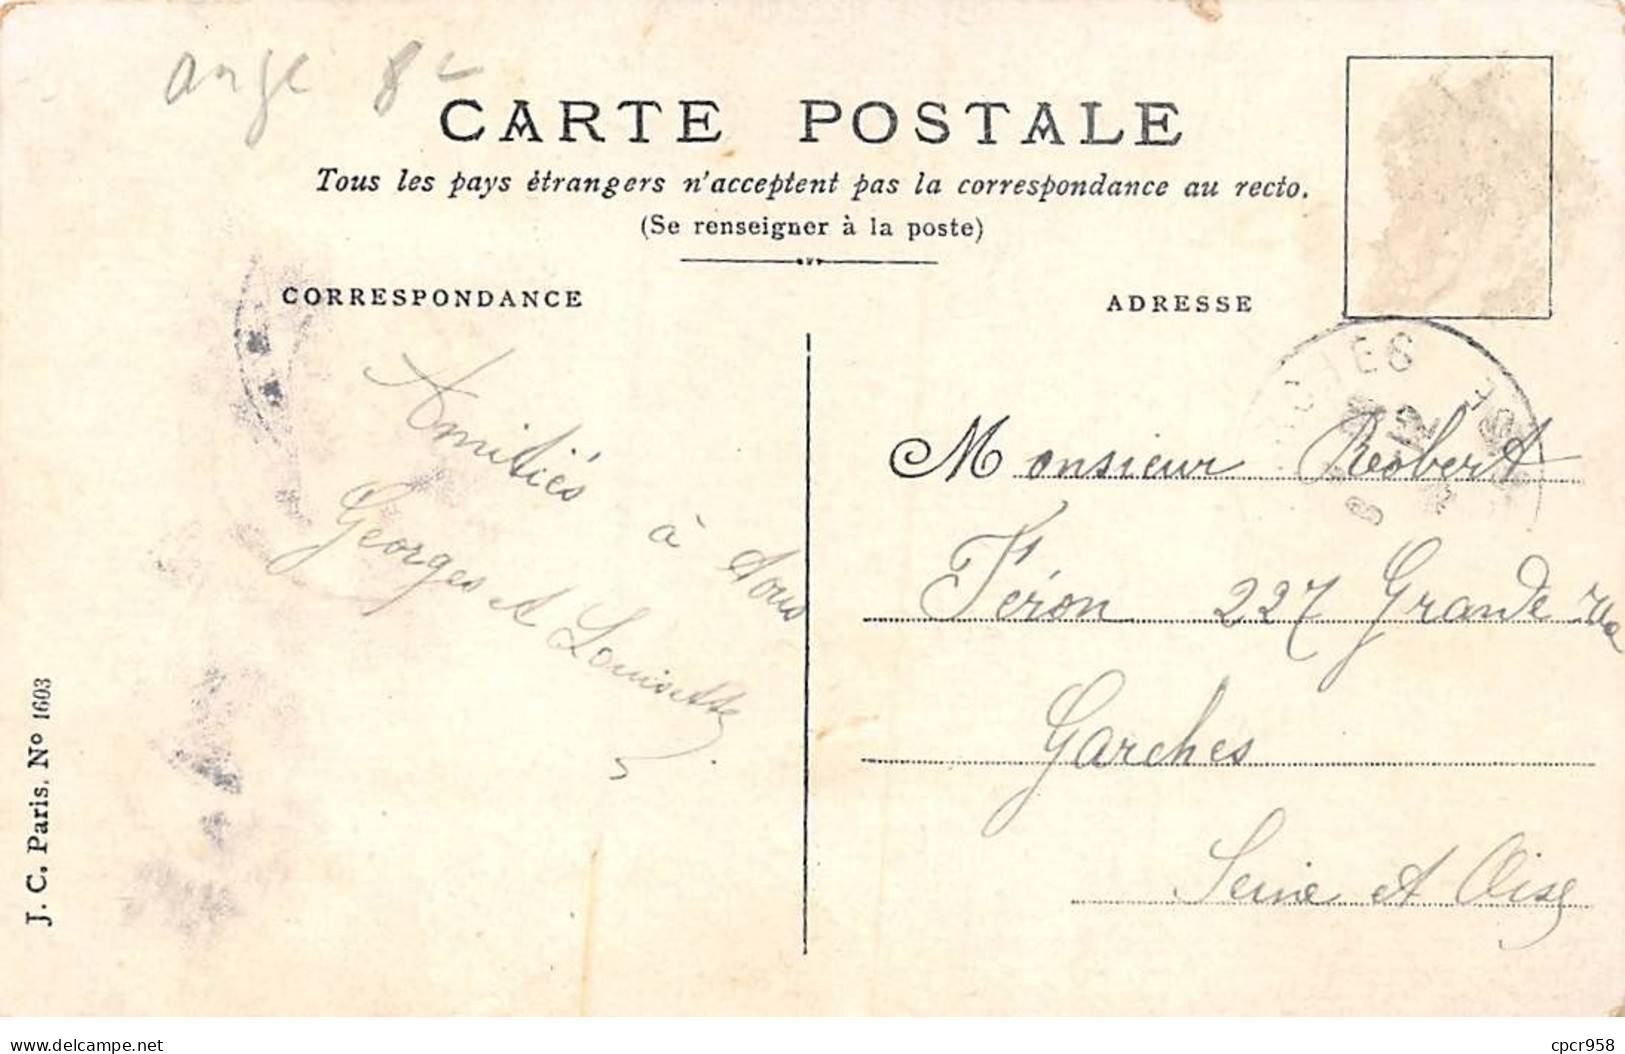 ange 8
CARTE POSTALE
Tous les pays étrangers n'acceptent pas la correspondance au recto.
(Se renseigner à la poste)
CORRESPONDANCE
Amitiés à tous
Georges et Louisette
ADRESSE
Monsieur Robert
Féron 227 Grande rue
Garches
Seine et Oise
J. C. Paris. Nº 1603
www.delcampe.net
cpcr958